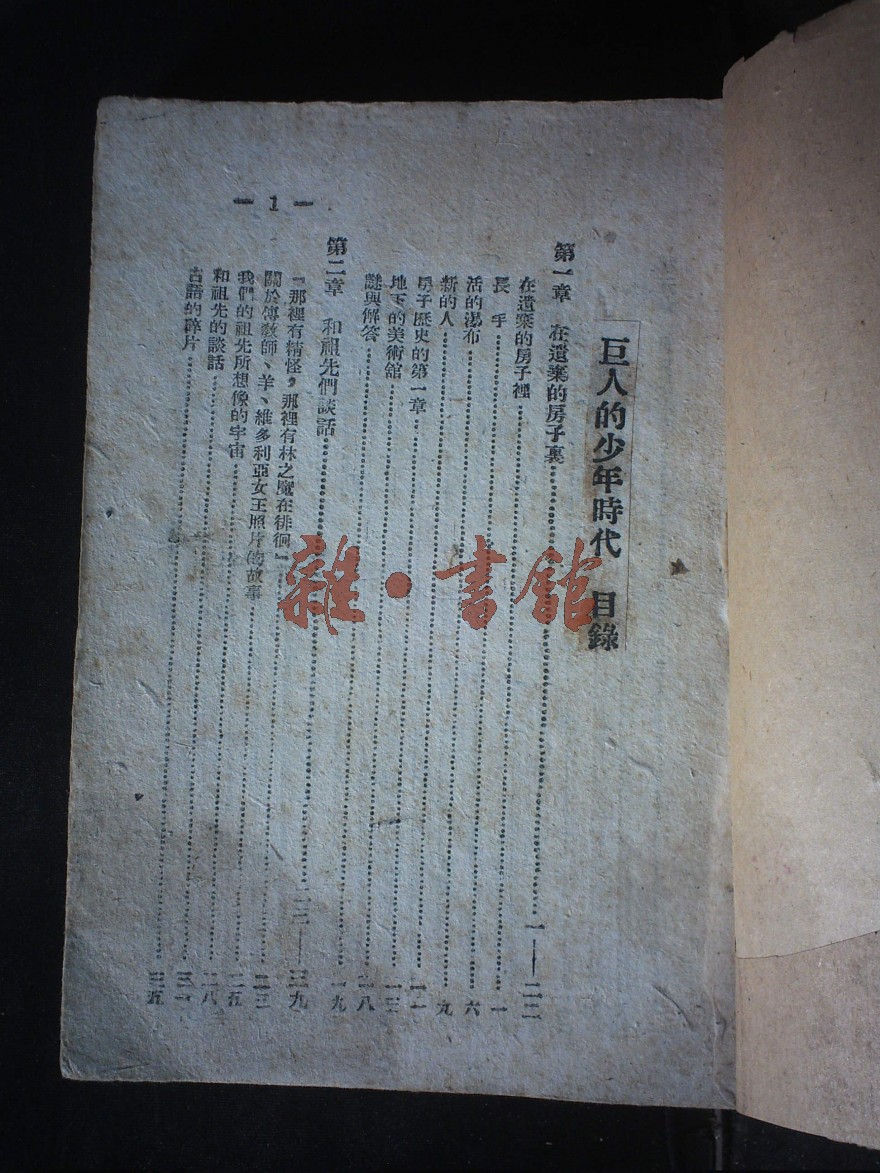 巨人的少年時代 目錄
第一章 在遺棄的房子裏……一——二二
在遺棄的房子裡……一
長手……六
活的瀑布……九
新的人……一一
房子歷史的第一章……一三
地下的美術館……一八
謎與解答……一九
第二章 和祖先們談話……二三——三九
『那裡有精怪，那裡有林之魔在徘徊』……二三
關於傳教師、羊、維多利亞女王照片的故事……二五
我們的祖先所想像的宇宙……二八
和祖先的談話……三一
古語的碎片……三五
— 1 —
雜·書館